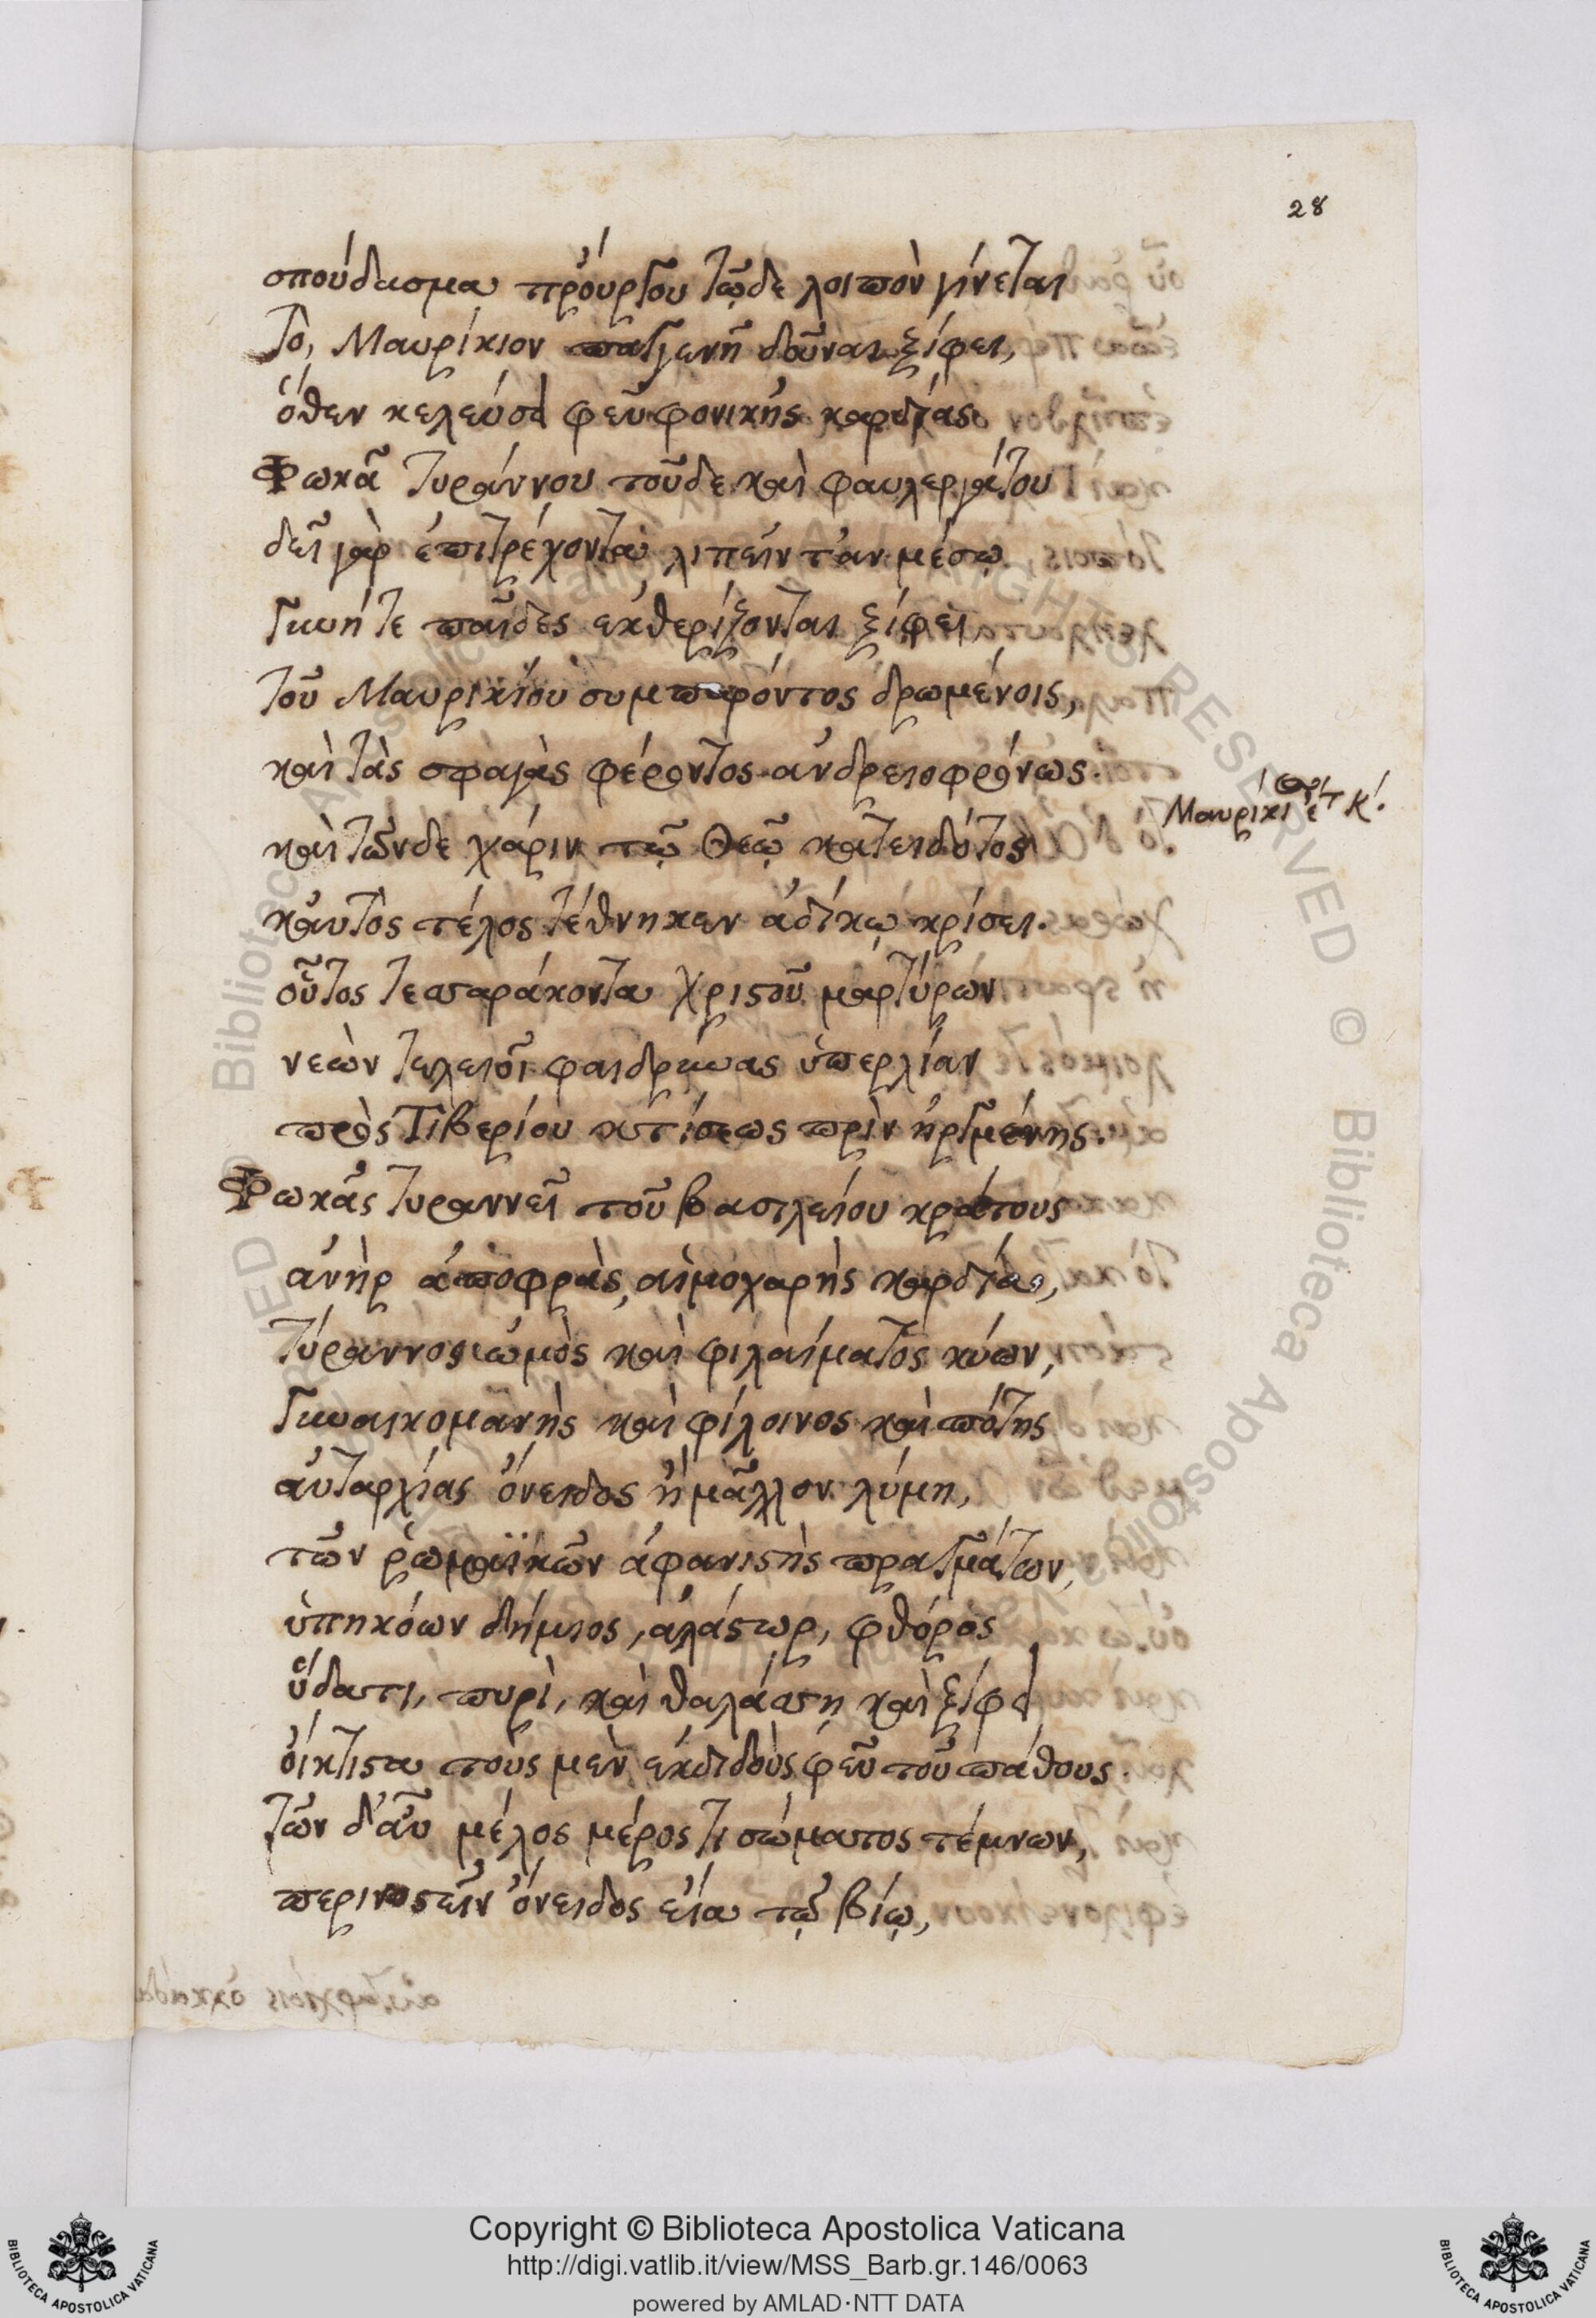 28
σπούδασμα προὔργου τῷδε λοιπὸν γίνεται
Τὸ, Μαυρίκιον παγγενῆ δοῦναι ξίφει,
ὅθεν κελεύσει φεῦ φονικῆς καρδίας
Φωκᾶ τυράννου τοῦδε καὶ φαυλεργάτου
δεῖ γὰρ ἐπιτρέχοντα λιπεῖν τ' ἀν μέσῳ
Γυνή τε παῖδες ἐκθερίζονται ξίφει
τοῦ Μαυρικίου συμπαρόντος δρωμένοις,
καὶ τὰς σφαγὰς φέροντος ἀνδρειοφρόνως.
Μαυρίκι ἔτ κ΄.
καὶ τῶνδε χάριν τῷ Θεῷ κατειδότος
καὐτὸς τέλος τέθνηκεν ἀδίκῳ κρίσει.
οὗτος τεσσαράκοντα Χριστοῦ μαρτύρων
νεὼν τελειοῖ φαιδρύνας ὑπερλίαν
πρὸς Τιβερίου κτίσεως πρὶν ἠργμένης.
Φωκᾶς τυραννεῖ τοῦ βασιλείου κράτους
ἀνὴρ ἀποφρὰς, αἱμοχαρὴς καρδίαν,
τύραννος ὠμὸς καὶ φιλαίματος κύων,
Γυναικομανὴς καὶ φίλοινος καὶ πότης
αὐταρχίας ὄνειδος ἢ μᾶλλον λύμη,
τῶν ῥωμαϊκῶν ἀφανιστὴς πραγμάτων,
ὑπηκόων δήμιος, ἀλάστωρ, φθόρος
ὕδατι, πυρὶ, καὶ θαλάσσῃ καὶ ξίφει
οἴκτιστα τοὺς μὲν ἐκδιδοὺς φεῦ τοῦ πάθους.
τῶν δ' αὖ μέλος μέρος τι σώματος τέμνων,
περινοστεῖν ὄνειδος εἴα τῷ βίῳ,
Copyright © Biblioteca Apostolica Vaticana
http://digi.vatlib.it/view/MSS_Barb.gr.146/0063
powered by AMLAD·NTT DATA